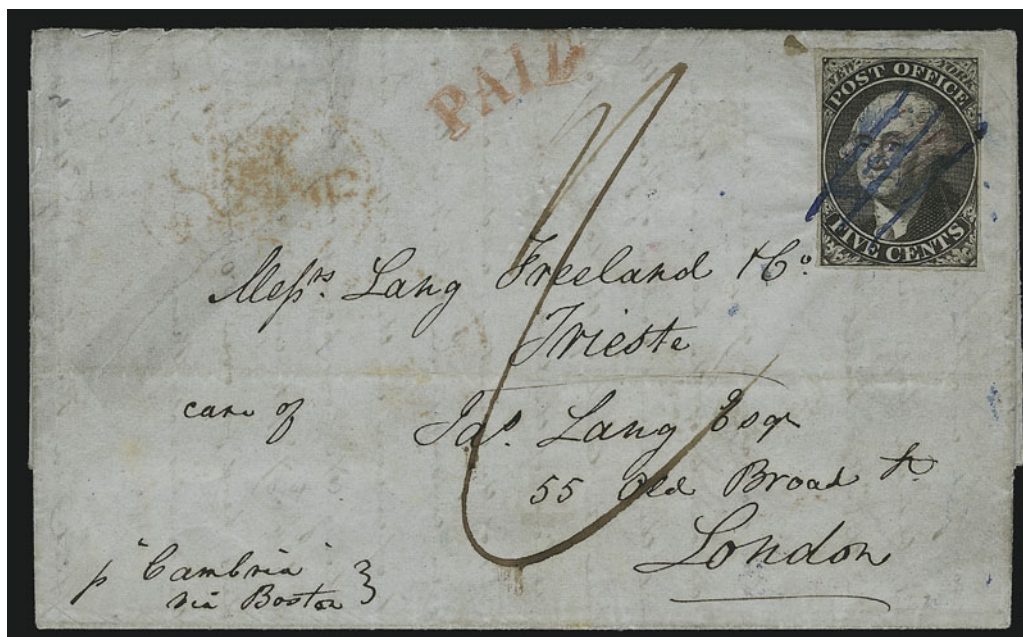 PAID
NEW YORK
POST OFFICE
FIVE CENTS
Messrs. Lang Freeland & Co.
Trieste
care of
Jas. Lang Esqr
55 Old Broad St.
London
p "Cambria"
via Boston